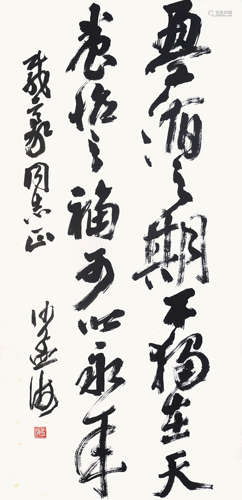 盈缩之期不独在天
养怡之福可以永年
义豪同志正
沙孟海